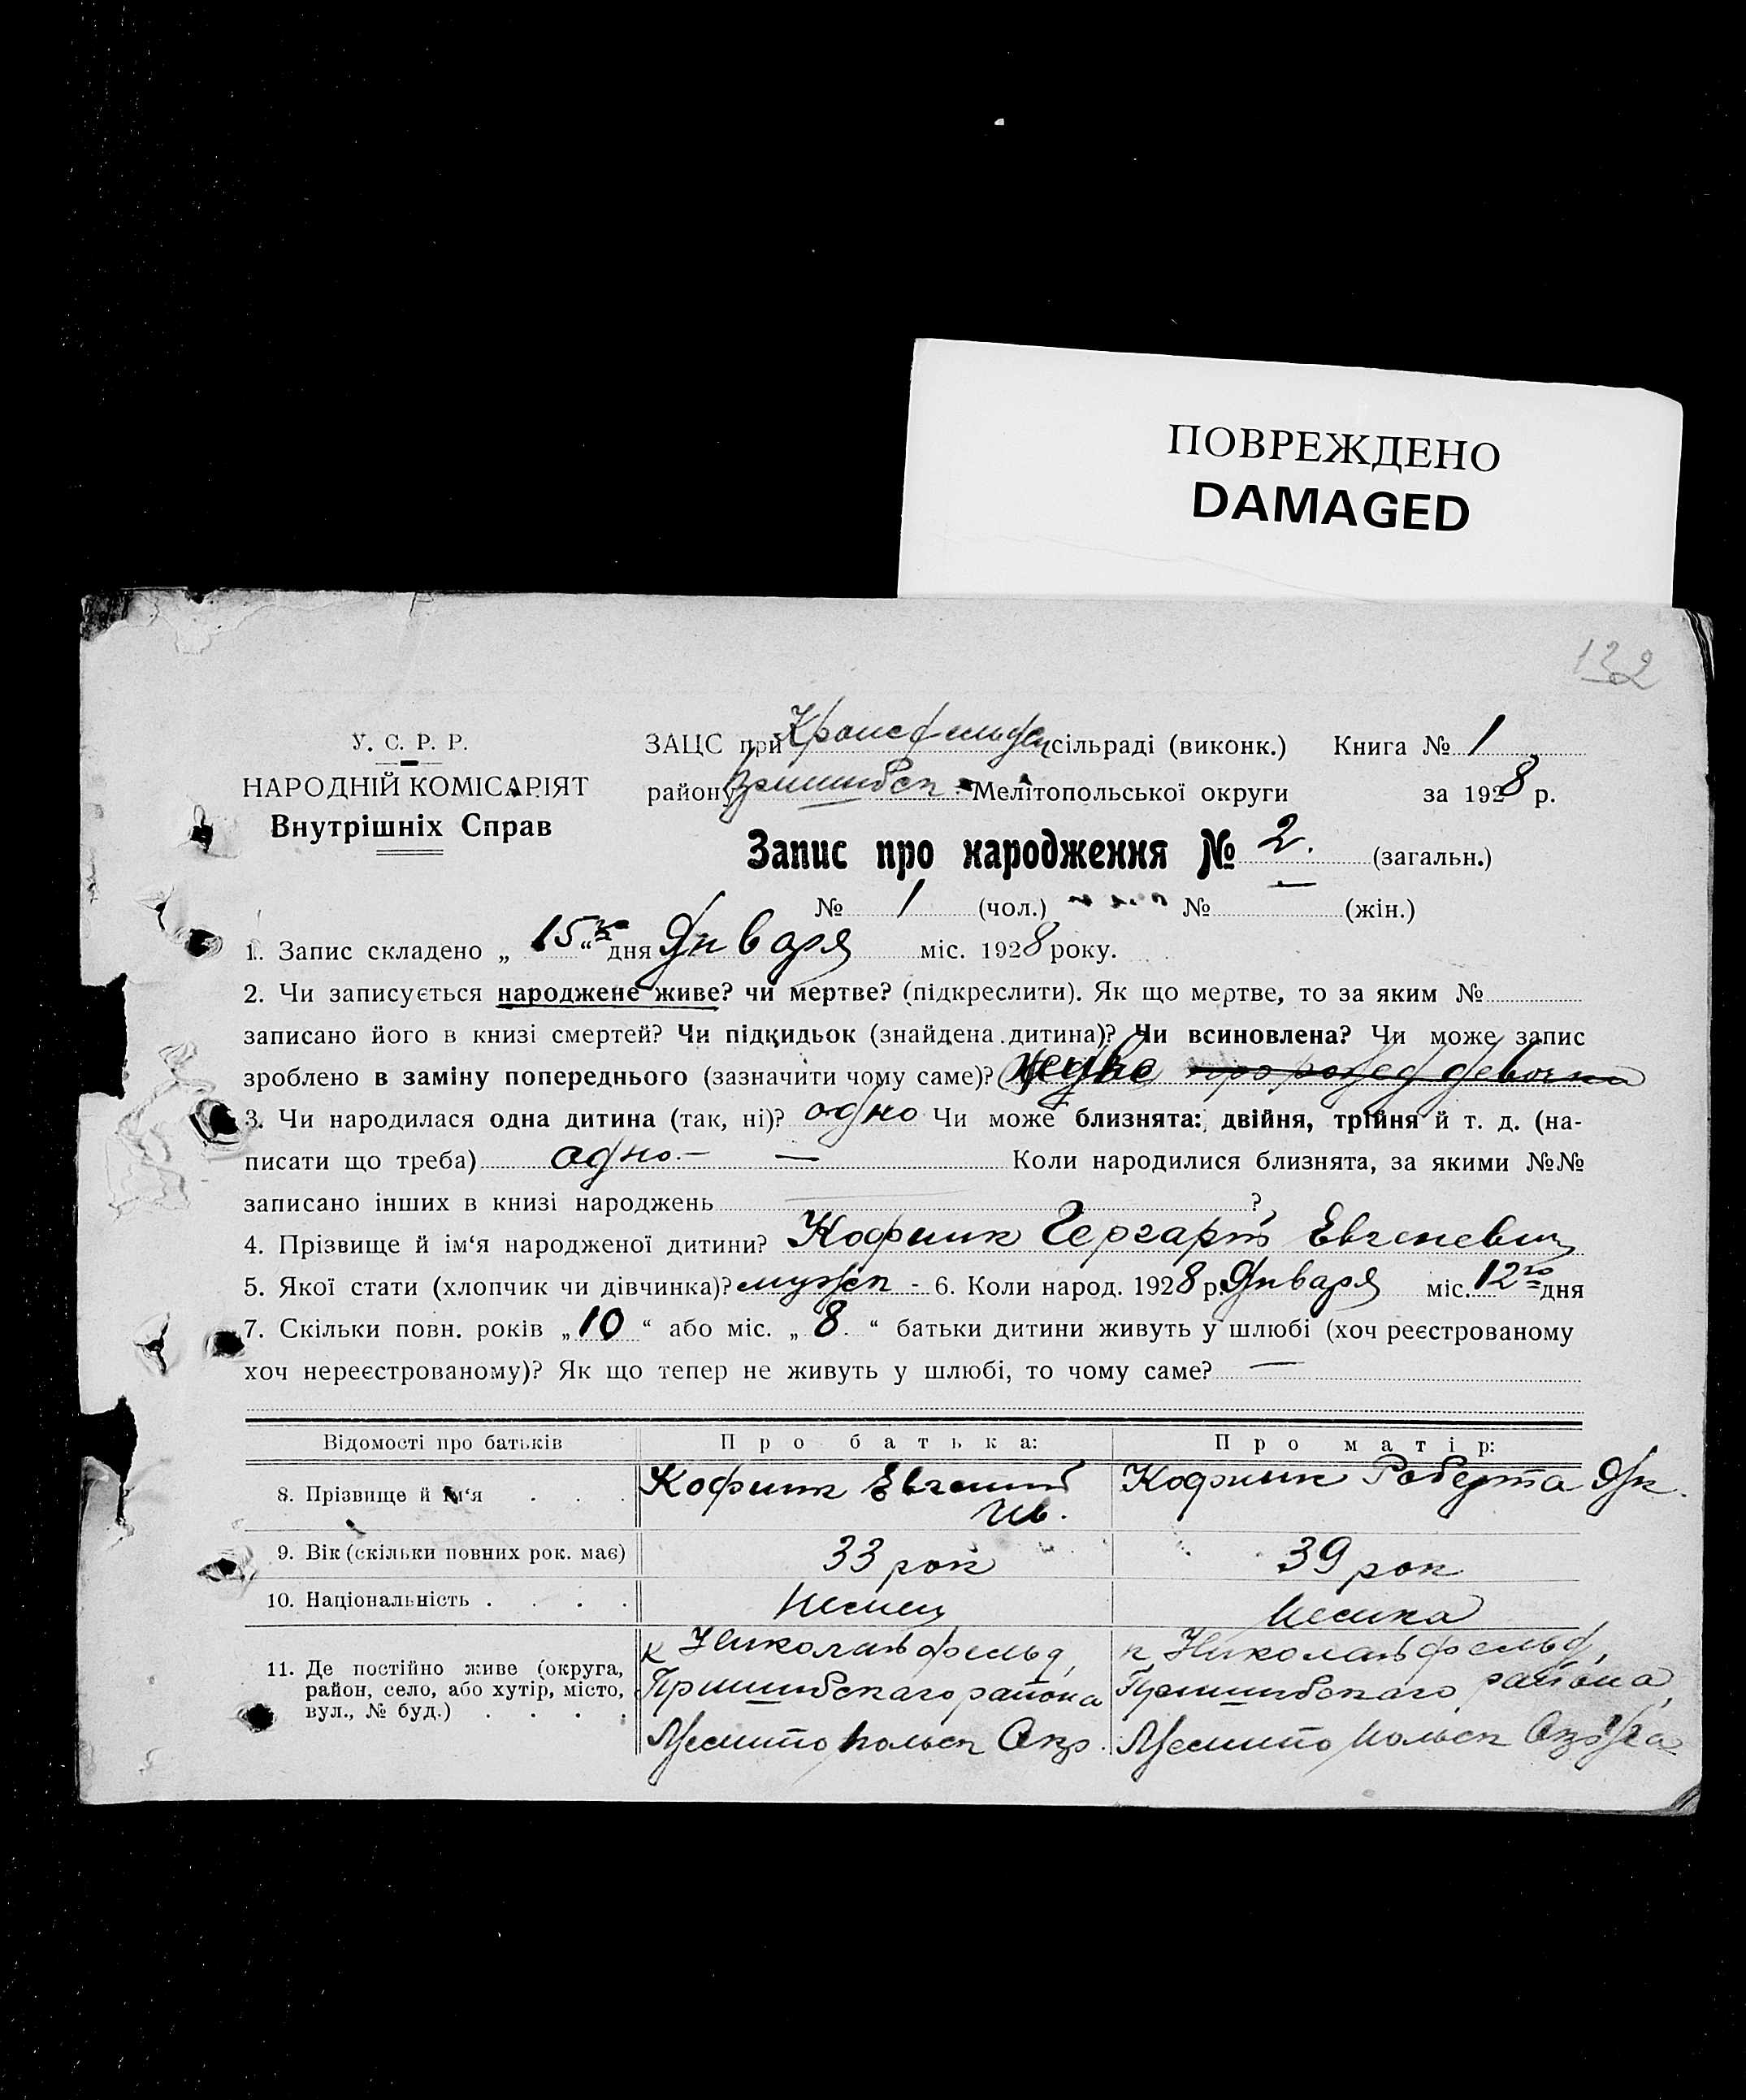 ПОВРЕЖДЕНО
DAMAGED
132
У. С. Р. Р.
НАРОДНІЙ КОМІСАРІЯТ
Внутрішніх Справ
ЗАЦС при сільраді (виконк.) Книга № 1
району Пришибск - Мелітопольської округи за 1928 р.
Запис про народження № 2. (загальн.)
№ 1 (чол.) № — (жін.)
1. Запис складено „ 15го “ дня Января міс. 1928 року.
2. Чи записується народжене живе? чи мертве? (підкреслити). Як що мертве, то за яким №
записано його в книзі смертей? Чи підкидьок (знайдена дитина)? Чи всиновлена? Чи може запис
зроблено в заміну попереднього (зазначити чому саме)?
3. Чи народилася одна дитина (так, ні)? одно Чи може близнята: двійня, трійня й т. д. (на-
писати що треба) одно. — — Коли народилися близнята, за якими №№
записано інших в книзі народжень ?
4. Прізвище й ім‘я народженої дитини? Кофинк Гергарт Евгеневич
5. Якої стати (хлопчик чи дівчинка)? мужск - 6. Коли народ. 1928 р. Января міс. 12го дня
7. Скільки повн. років „ 10 “ або міс. „ 8. “ батьки дитини живуть у шлюбі (хоч реєстрованому
хоч нереєстрованому)? Як що тепер не живуть у шлюбі, то чому саме? —
Відомості про батьків Про батька: Про матір:
8. Прізвище й ім‘я . . . Кофинк Евгений Ив. Кофинк Роберта Як.
9. Вік (скільки повних рок. має) 33 рок 39 рок
10. Національність . . . . Немец Немка
11. Де постійно живе (округа, к Николайфельд, к Николайфельд,
район, село, або хутір, місто, Пришибскаго района Пришибскаго района,
вул., № буд.) . . . . Мелитопольск Окр. Мелитопольск Округа